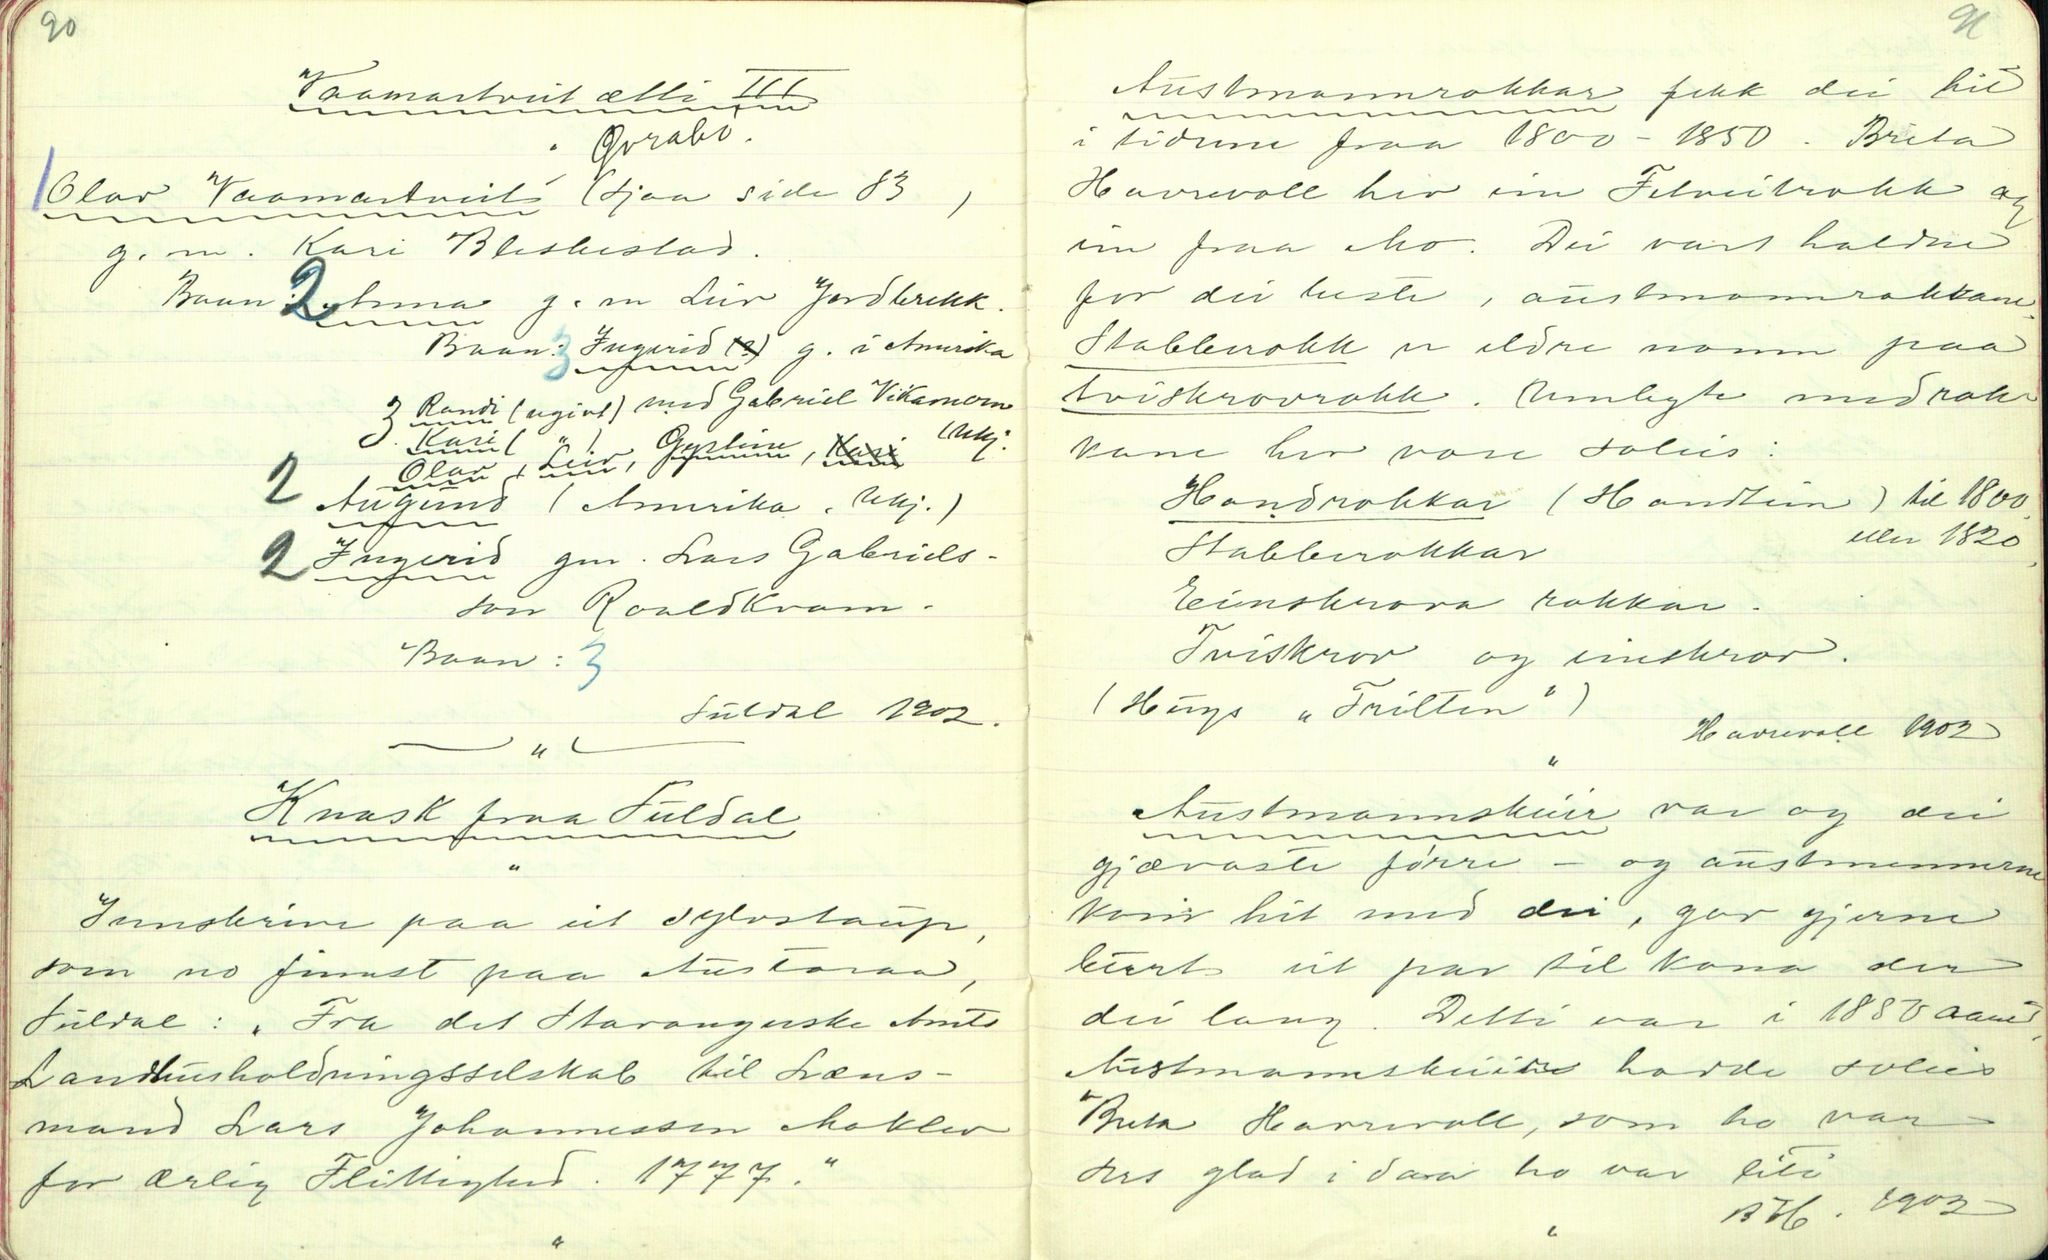 90
Vaamartveit ætti III
Qvrabö.
Olav Vaamartveit (sjaa side 83)
g. m. Kari Bleskestad.
Baan: 2 Anna g. m Leiv Jordbrekk.
Baan: 3 Ingerid (2) g. i Amerika
3 Randi (ugivt) med Gabriel Vikamoen
Kari ( " ) (Ukj.
Olav, Leiv, Gyrline, Kari
2 Augund (Amerika. Ukj.)
2 Ingerid gm. Lars Gabriels-
son Roaldkvam.
Baan: 3
Suldal 1902.
"
Knask fraa Suldal
"
Innskrive paa eit sylvstaup,
som no finnst paa Austaraa,
Suldal: "Fra det Stavangerske Amts
Landhusholdningsselskab til Læns-
mand Lars Johannessen Mokleiv
for ærlig Flittighed. 1777."
"
91
Austmannrokkar fekk dei hit
i tidene fraa 1800-1850. Breta
Havrevoll hev ein Felveitrokk og
ein fraa Mo. Dei vart haldne
for dei beste, austmannrokkane.
Stabberokk er eldre namn paa
tviskrovrokk. Umbyte med rok-
kane hev vore soleis:
Handrokkar (Handtein) til 1800,
eller 1820,
Stabberokkar
Einskrova rokkar.
Tviskrov og einskrov.
(Hugs "Trilten")
Havrevoll 1902
"
Austmannskeier var og dei
gjævaste förre - og austmennerne
kom hit med dei, gav gjerne
burt eit par til kona der
dei laag. Dette var i 1850 aari,
Austmannskeier hadde soleis
Breta Havrevoll, som ho var
sers glad i daa ho var liti
BH. 1902
"